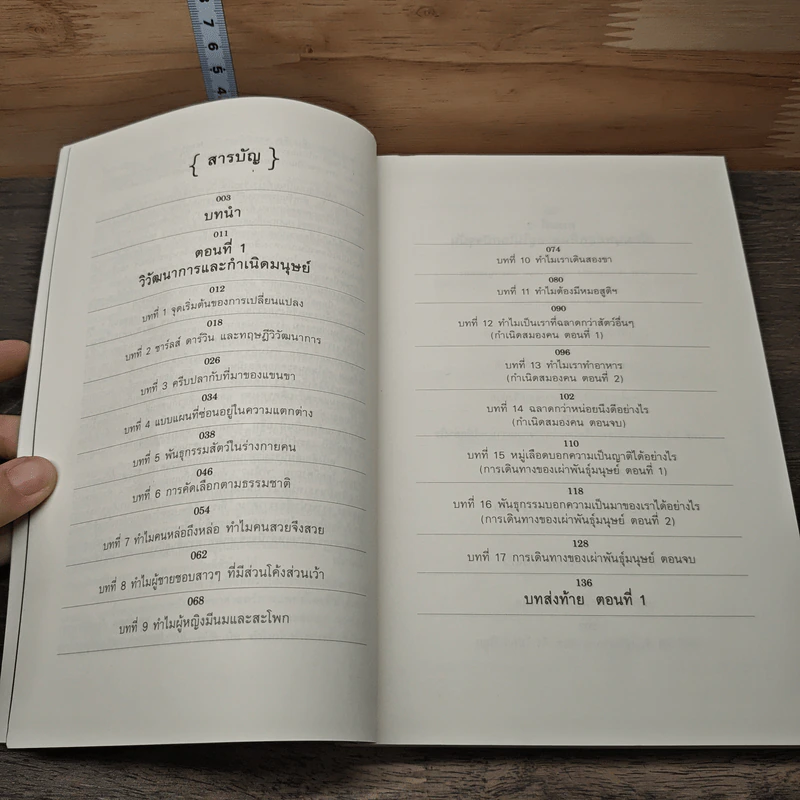 8
7
6
5
4
{ สารบัญ }
003
บทนำ
011
ตอนที่ 1
วิวัฒนาการและกำเนิดมนุษย์
012
บทที่ 1 จุดเริ่มต้นของการเปลี่ยนแปลง
018
บทที่ 2 ชาร์ลส์ ดาร์วิน และทฤษฎีวิวัฒนาการ
026
บทที่ 3 ครีบปลากับที่มาของแขนขา
034
บทที่ 4 แบบแผนที่ซ่อนอยู่ในความแตกต่าง
038
บทที่ 5 พันธุกรรมสัตว์ในร่างกายคน
046
บทที่ 6 การคัดเลือกตามธรรมชาติ
054
บทที่ 7 ทำไมคนหล่อถึงหล่อ ทำไมคนสวยจึงสวย
062
บทที่ 8 ทำไมผู้ชายชอบสาวๆ ที่มีส่วนโค้งส่วนเว้า
068
บทที่ 9 ทำไมผู้หญิงมีนมและสะโพก
074
บทที่ 10 ทำไมเราเดินสองขา
080
บทที่ 11 ทำไมต้องมีหมอสูติฯ
090
บทที่ 12 ทำไมเป็นเราที่ฉลาดกว่าสัตว์อื่นๆ
(กำเนิดสมองคน ตอนที่ 1)
096
บทที่ 13 ทำไมเราทำอาหาร
(กำเนิดสมองคน ตอนที่ 2)
102
บทที่ 14 ฉลาดกว่าหน่อยนึงดีอย่างไร
(กำเนิดสมองคน ตอนจบ)
110
บทที่ 15 หมู่เลือดบอกความเป็นญาติได้อย่างไร
(การเดินทางของเผ่าพันธุ์มนุษย์ ตอนที่ 1)
118
บทที่ 16 พันธุกรรมบอกความเป็นมาของเราได้อย่างไร
(การเดินทางของเผ่าพันธุ์มนุษย์ ตอนที่ 2)
128
บทที่ 17 การเดินทางของเผ่าพันธุ์มนุษย์ ตอนจบ
136
บทส่งท้าย ตอนที่ 1